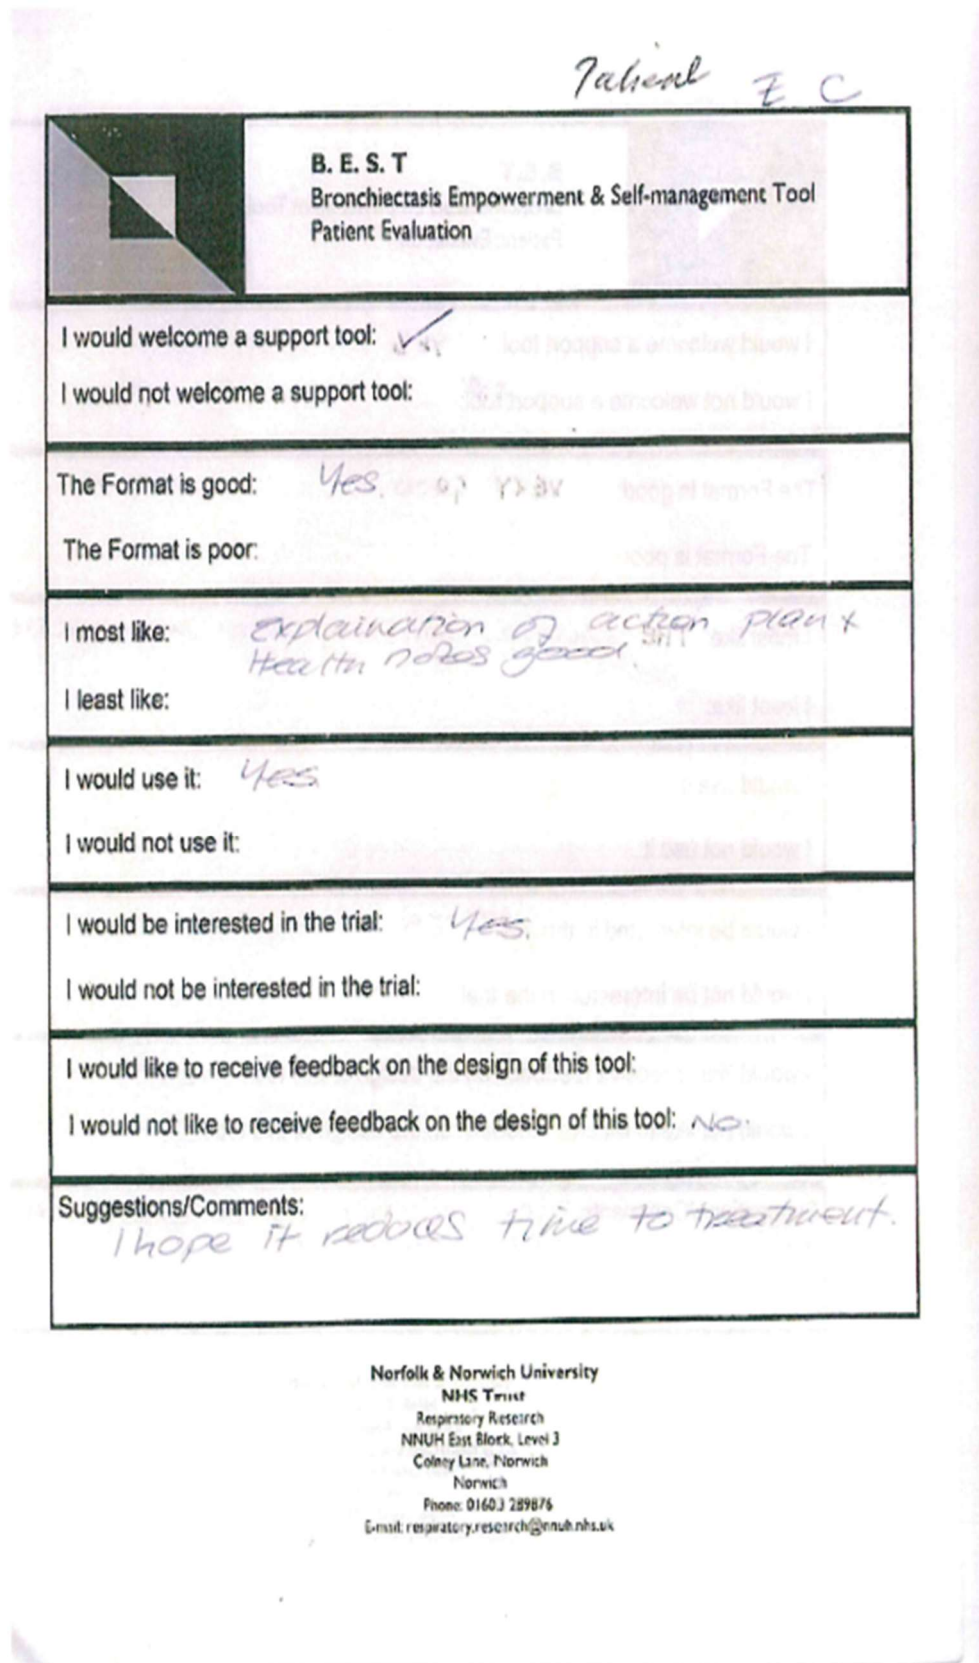 Patient E C
B. E. S. T
Bronchiectasis Empowerment & Self-management Tool
Patient Evaluation
I would welcome a support tool: ✓
I would not welcome a support tool:
The Format is good: Yes.
The Format is poor:
I most like: explaination of action plan +
Health notes good.
I least like:
I would use it: Yes
I would not use it:
I would be interested in the trial: Yes.
I would not be interested in the trial:
I would like to receive feedback on the design of this tool:
I would not like to receive feedback on the design of this tool: No.
Suggestions/Comments:
I hope it reduces time to treatment.
Norfolk & Norwich University
NHS Trust
Respiratory Research
NNUH East Block, Level 3
Colney Lane, Norwich
Norwich
Phone: 01603 289876
E-mail: respiratory.research@nnuh.nhs.uk